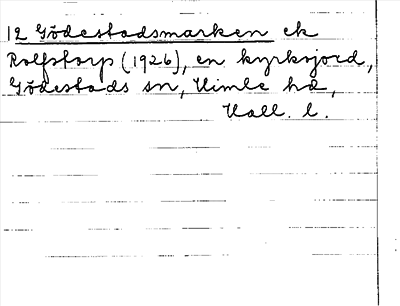 12 Gödestadsmarken ek
Rolfstorp (1926), en kyrkojord,
Gödestads sn, Himle hd,
Hall. l.